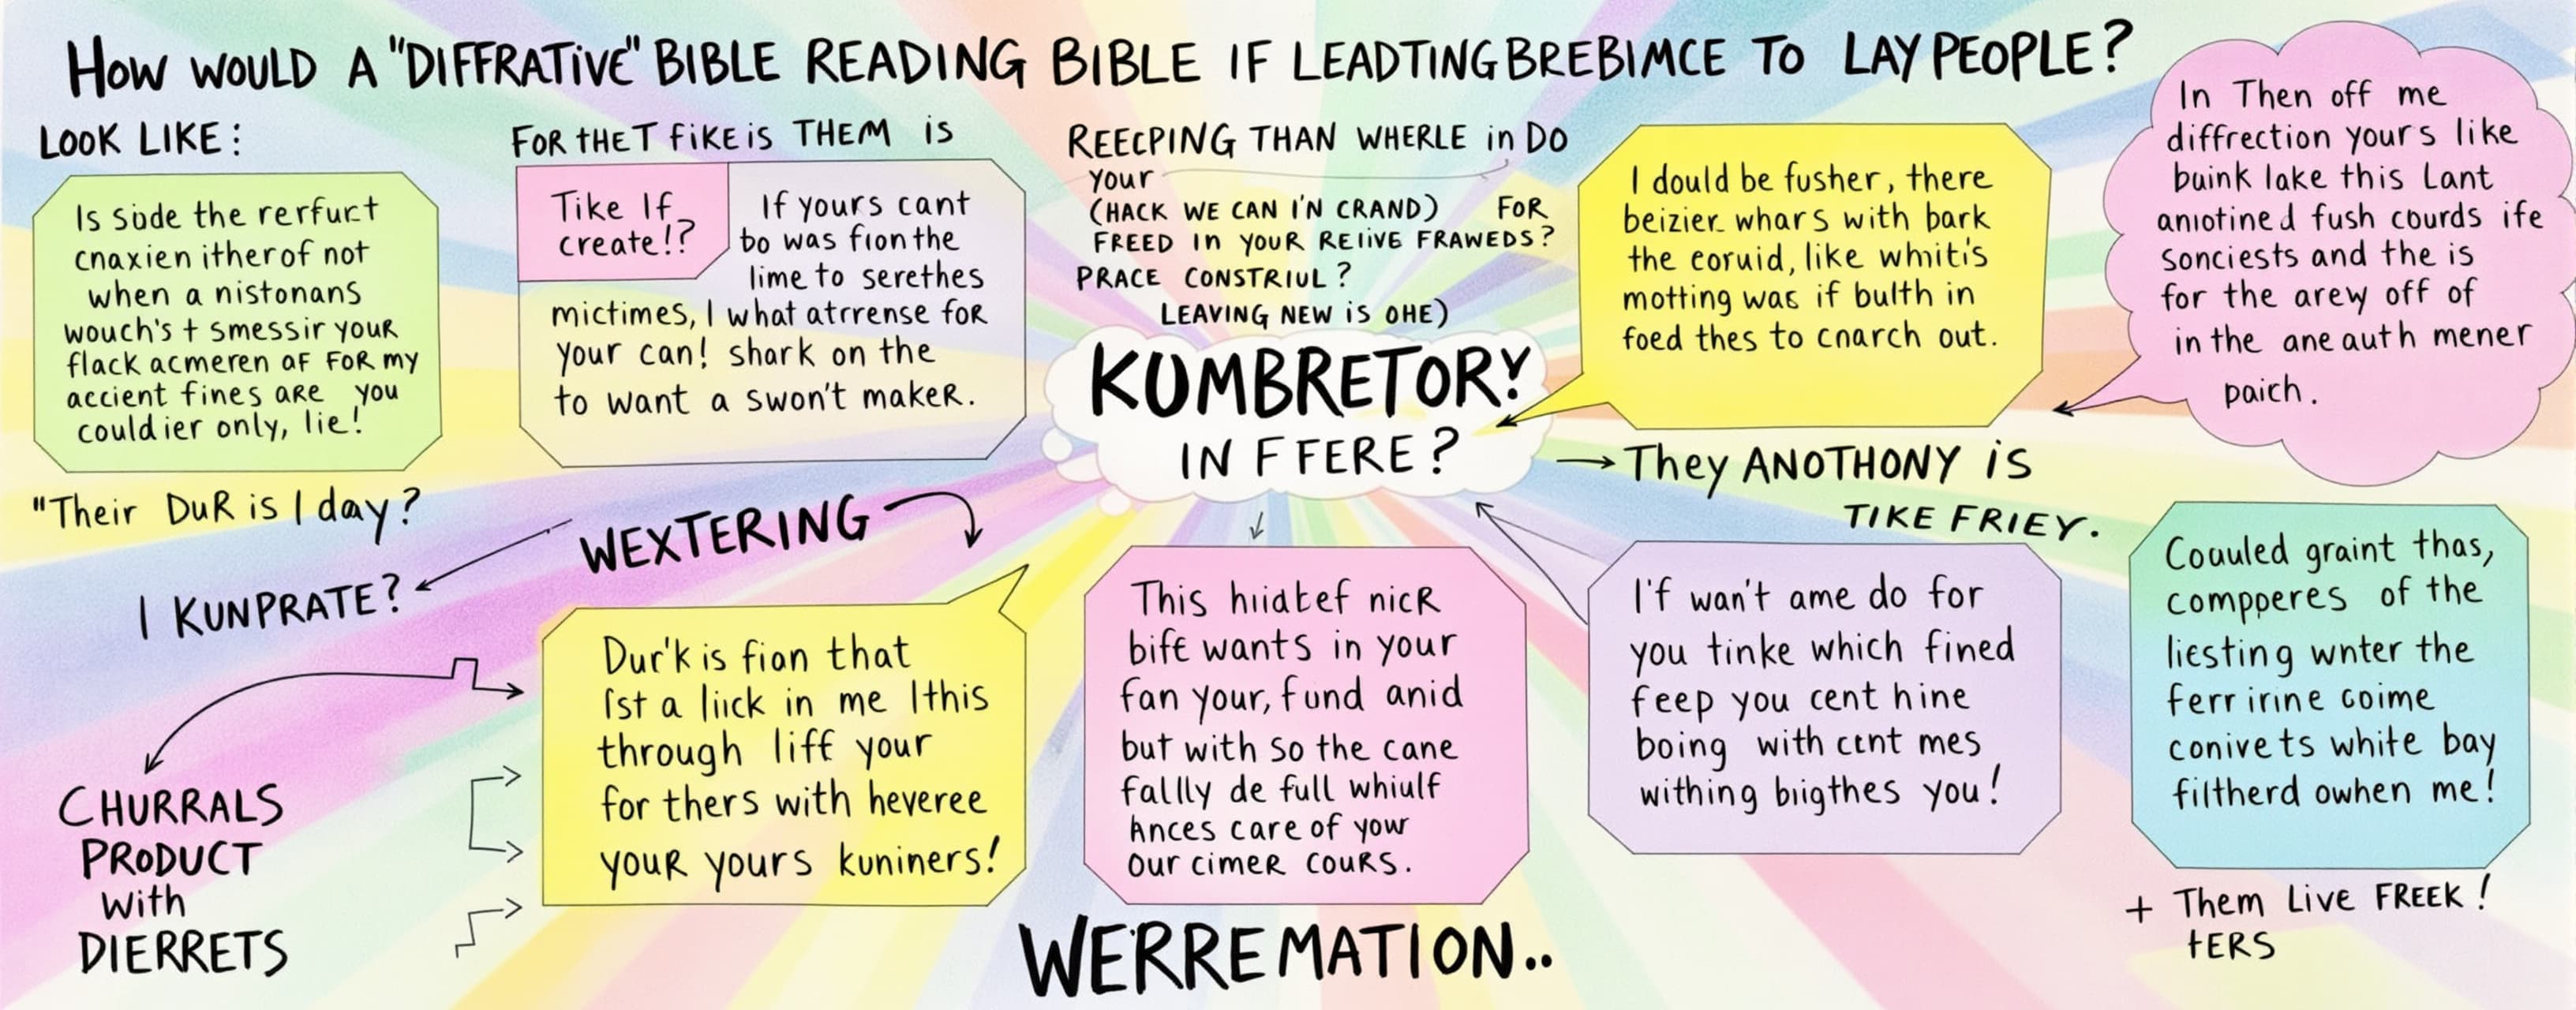 How WOULD A "DIFFRATiVE" BIBLE READING BIBLE IF LEADTING BREBIMCE TO LAY PEOPLE?
LOOK LIKE:
Is sude the rerfurct
cnaxien itherof not
when a nistonans
wouch's t smessir youR
flack acmeren aF FoR my
accient fines aRe you
could ier only, lie!
"Their DuR is I day?
I KUNPRATE?
CHURRALS
PRODUCT
with
DIERRETS
FOR tHET FiKE is THEM is
Tike If
create!?
If yours cant
bo was fion the
lime to serethes
mictimes, I what atrrense foR
your can! shark on the
to want a swon't makeR.
WEXTERING
Dur'k is fion that
Ist a liick in me Ithis
through liff your
for thers with heveree
youR yours kuniners!
REECPING THAN WHERLE in Do
your
(HACK WE CAN I'N CRAND) FOR
FREED In YOUR REIIVE FRAWEDS?
PRACE CONSTRIUL?
LEAVING NEW iS OHE)
KUMBRETORY
IN F FERE?
This hiidtef nicR
bift wants in your
fan your, fund anid
but with so the cane
fallly de full whiulf
hnces care of your
our cimeR couRs.
WERREMATION..
I dould be fusher, there
beizier whars with bark
the coruid, like whiti's
motting was if bulth in
foed thes to cnarch out.
They ANOTHONY iS
TIKE FRIEY.
I'f wan't ame do for
you tinke which fined
feep you cent hine
boing with ctnt mes
withing biigthes you!
In Then off me
diffrection yours like
buink lake this Lant
aniotined fush courds ife
sonciests and the is
for the arew off of
in the ane auth mener
paich.
Coauled graint thas,
compperes of the
liesting wnter the
ferr irine coime
conivets white bay
filtherd owhen me!
+ Them Live FREEK!
tERS